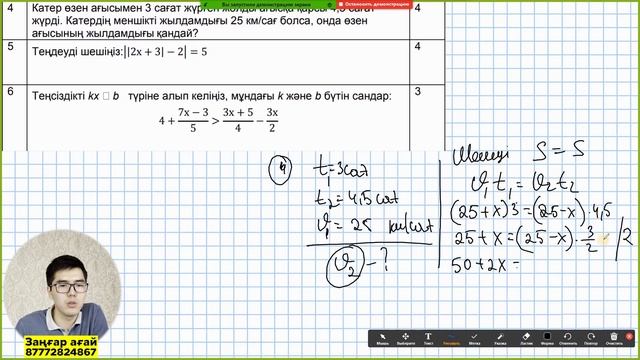 Вы запустили демонстрацию экрана Остановить демонстрацию
4 Катер өзен ағысымен 3 сағат 4
жүрді. Катердің меншікті жылдамдығы 25 км/сағ болса, онда өзен
ағысының жылдамдығы қандай?
5 Теңдеуді шешіңіз:||2x + 3| − 2| = 5 4
6 Теңсіздікті kx □ b түріне алып келіңіз, мұндағы k және b бүтін сандар: 3
4 + (7x − 3)/5 > (3x + 5)/4 − 3x/2
4
t₁=3 сағ
t₂=4,5 сағ
ϑ₁=25 км/сағ
ϑ₂ − ?
Шешуі S = S
ϑ₁t₁ = ϑ₂t₂
(25+x)3=(25−x)·4,5
25+x=(25−x)·3/2 /2
50+2x=
Заңғар ағай
87772824867
Мышь Выберите Текст Рисовать Ластик Формат Отменить Повторить